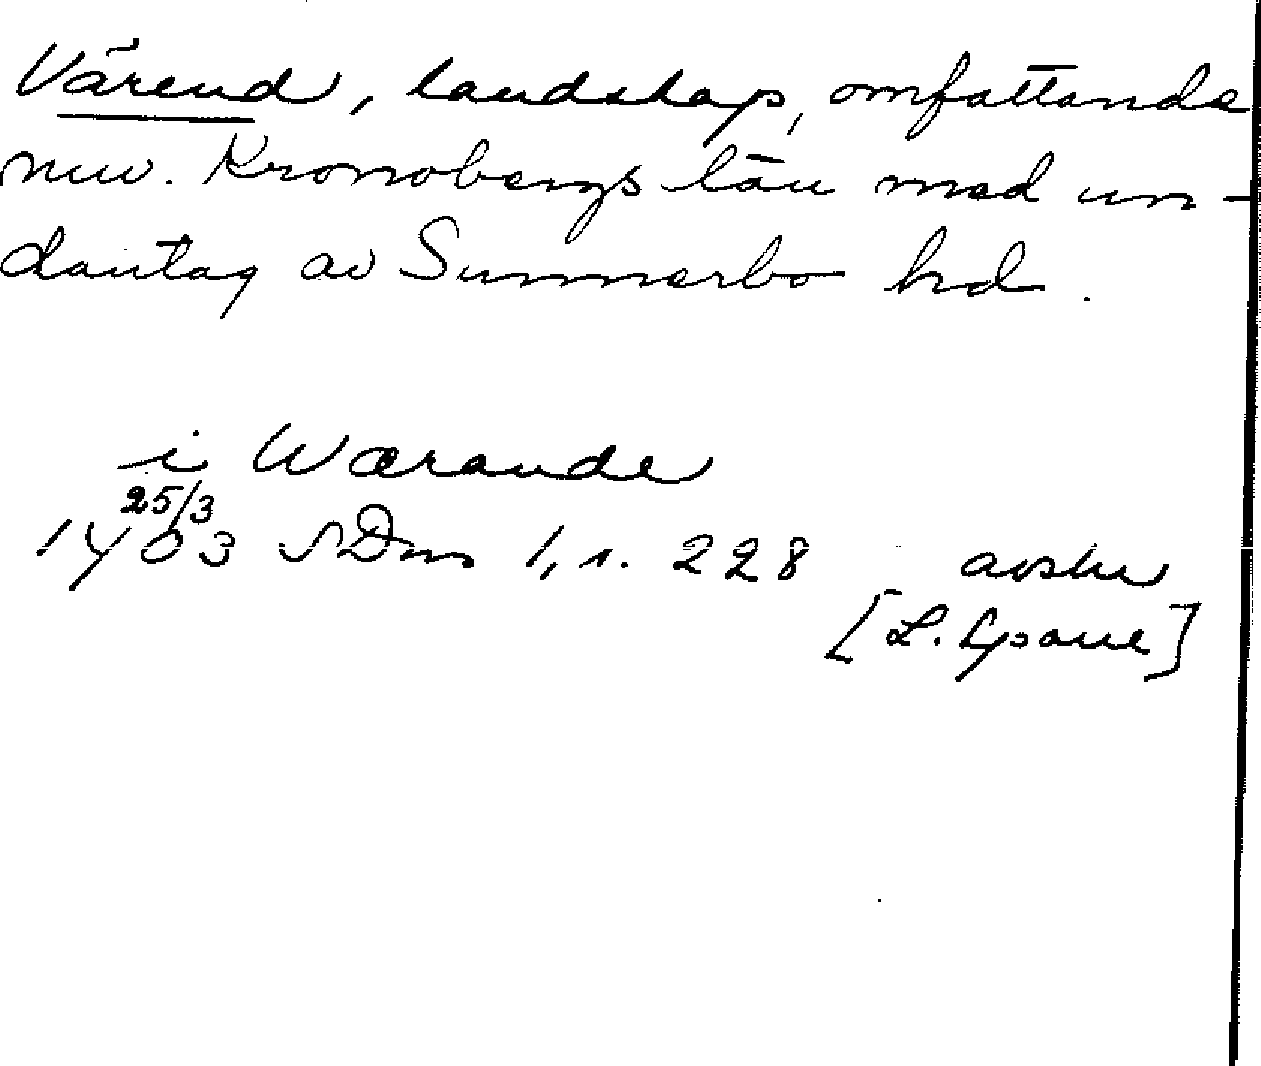 Värend, landskap, omfattande
nuv. Kronobergs län med un-
dantag av Sunnerbo hd.
i Wærande
25/3
1403 SDns 1, s. 228 avskr
[L.